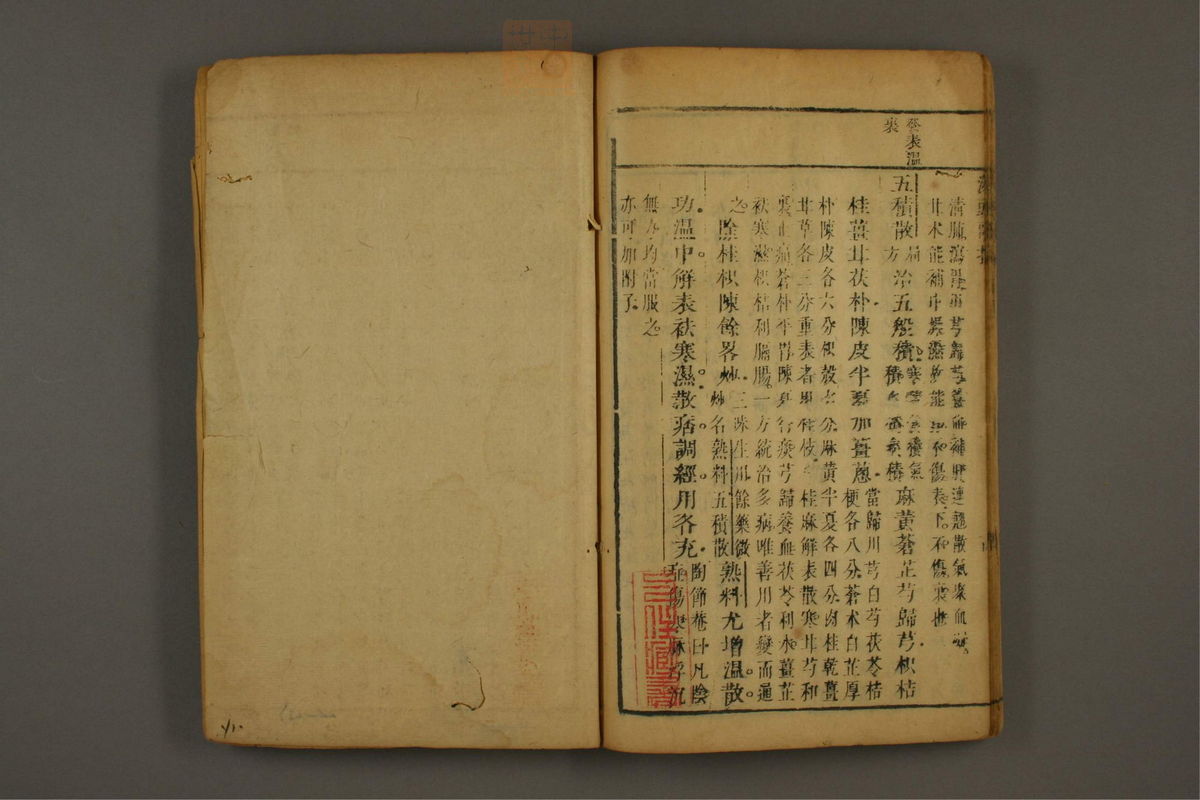 發表溫
裏
清肺瀉脾芎歸芍薑能補肝連翹散氣聚血凝
甘术能補中燥濕故能解表不傷表下不傷裏也
五積散局方治五般積寒積食積氣積血積痰積麻黃蒼芷芍歸芎枳桔
桂薑甘茯朴陳皮半夏加薑蔥當歸川芎白芍茯苓桔梗各八分蒼朮白芷厚
朴陳皮各六分枳殼七分麻黃半夏各四分肉桂乾薑
甘草各三分重表者用桂枝桂麻解表散寒甘芍和
裏止痛蒼朴平胃陳半行痰芎歸養血茯苓利水薑芷
祛寒濕枳桔利膈腸一方統治多病唯善用者變而通
之
除桂枳陳餘畧炒三味生用餘藥微炒名熟料五積散熟料尤增溫散
功溫中解表祛寒濕散痞調經用各充陶節菴曰凡陰證傷寒脉浮沉
無力均當服之
亦可加附子